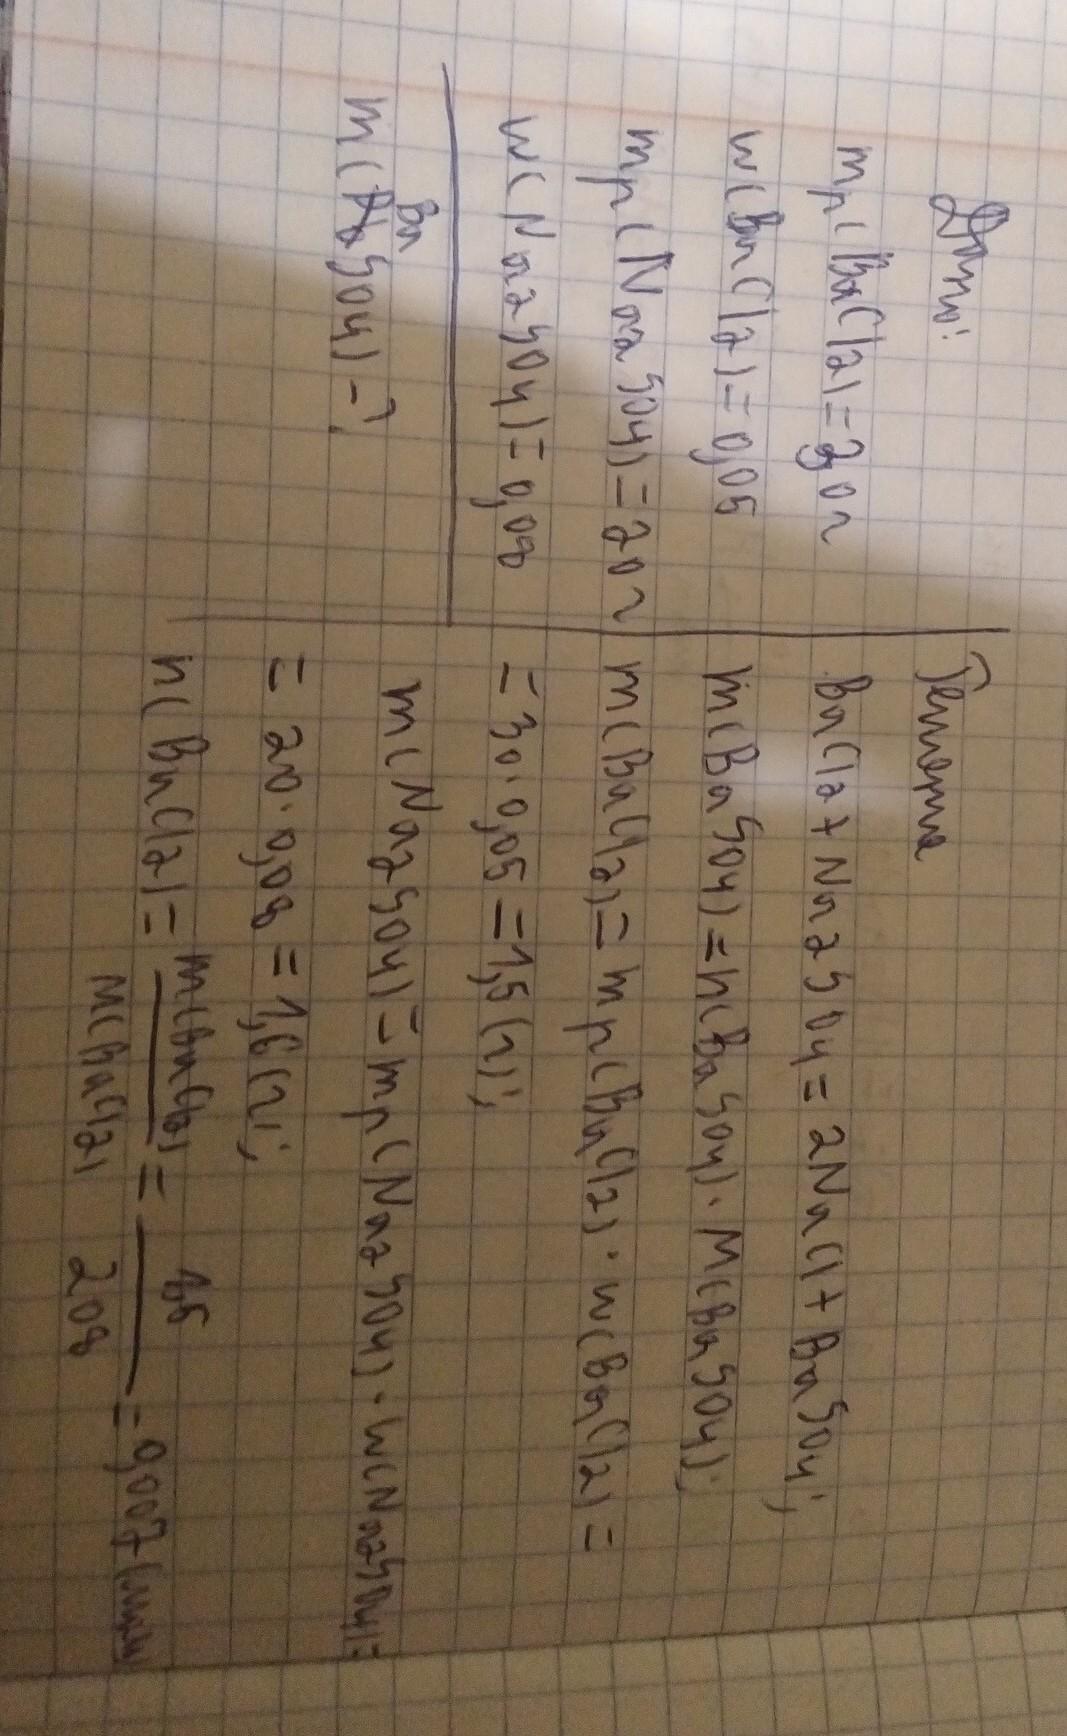 Дано:
mр(BaCl2)=30г
w(BaCl2)=0,05
mр(Na2SO4)=20г
w(Na2SO4)=0,08
Ba
m(SO4)-?
BaCl2+Na2SO4=2NaCl+BaSO4;
m(BaSO4)=n(BaSO4)·M(BaSO4);
m(BaCl2)=mр(BaCl2)·w(BaCl2)=
=30·0,05=1,5(г);
m(Na2SO4)=mр(Na2SO4)·w(Na2SO4)=
=20·0,08=1,6(г);
n(BaCl2)=m(BaCl2)/M(BaCl2)=1,5/208=0,007(моль